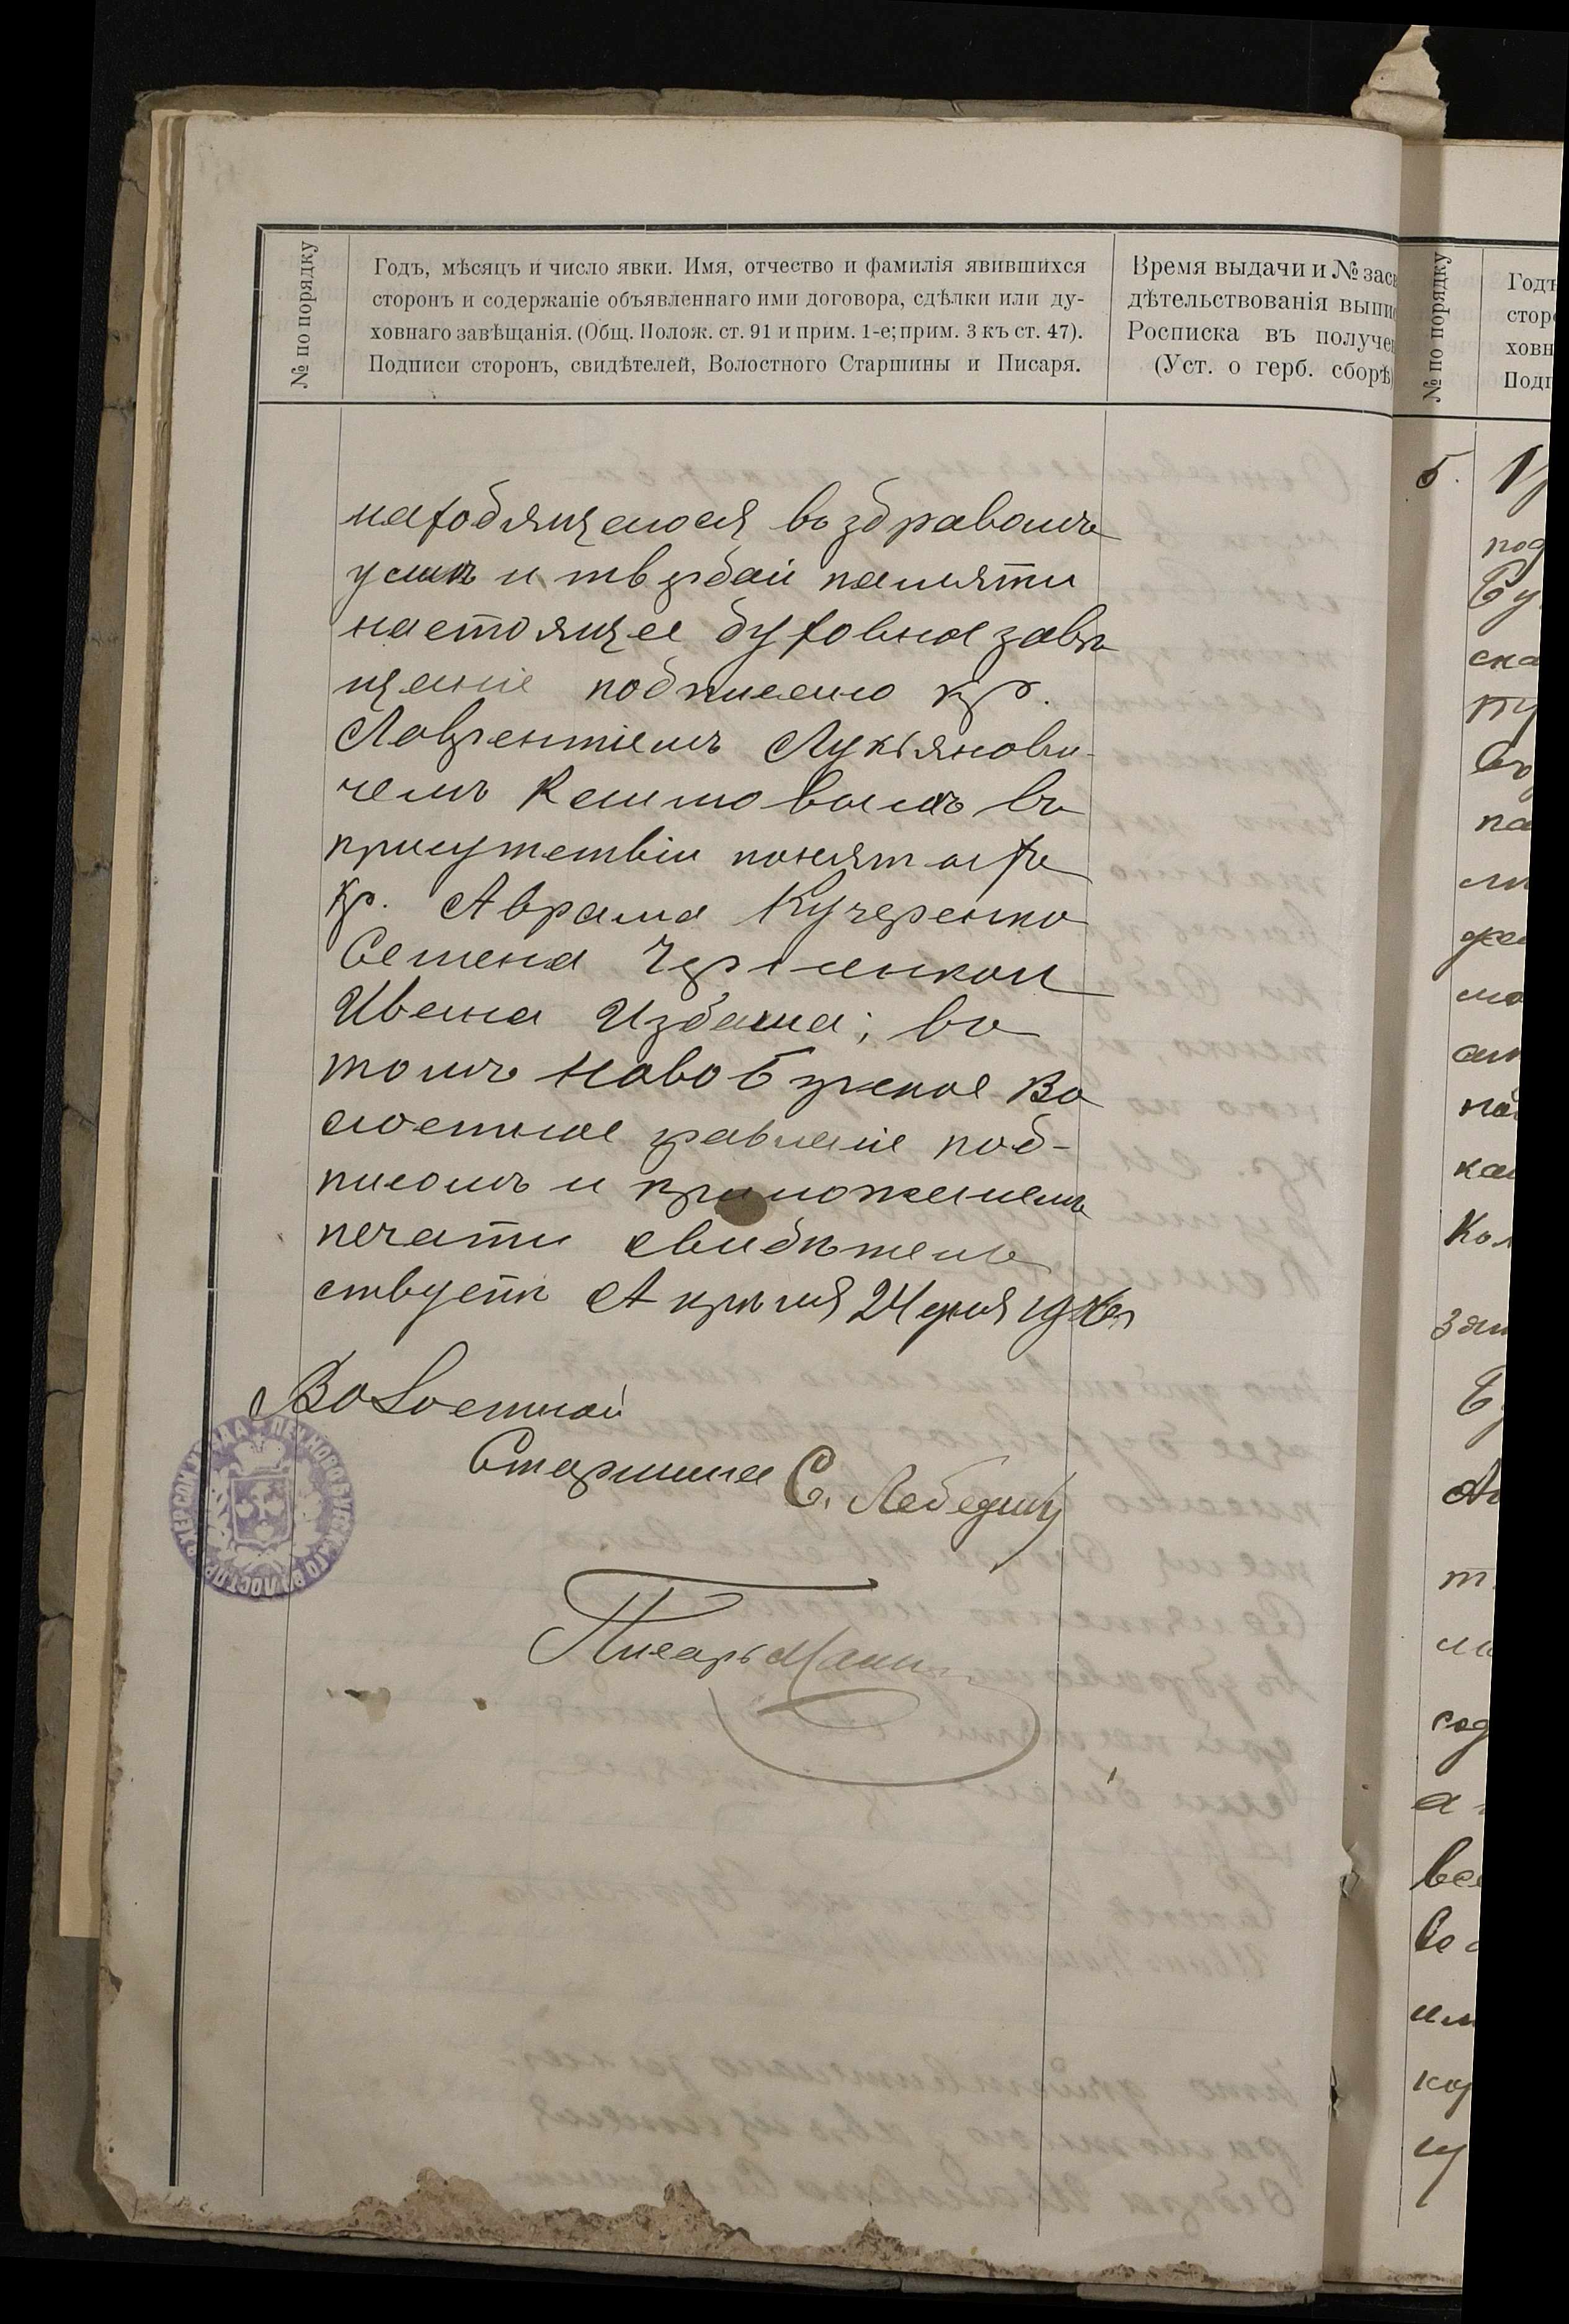 № по порядку
Годъ, мѣсяцъ и число явки. Имя, отчество и фамилія явившихся
сторонъ и содержаніе объявленнаго ими договора, сдѣлки или ду-
ховнаго завѣщанія. (Общ. Полож. ст. 91 и прим. 1-е; прим. 3 къ ст. 47).
Подписи сторонъ, свидѣтелей, Волостного Старшины и Писаря.
Время выдачи и № засв
дѣтельствованія выпи
Росписка въ получе
(Уст. о герб. сборѣ
находящагося въ здравомъ
умѣ и твердой памяти
настоящее духовное завѣ
щаніе подписано кр.
Лаврентіемъ Лукьянови-
чемъ Климовымъ въ
присутствіи понятыхъ
кр. Аврама Кучеренко
Семена
Ивана Избаша; въ
томъ Ново Бугское Во
лостное равленіе под-
писомъ и приложеніемъ
печати свидѣтель
ствуетъ Апрѣля 24 дня
Волостной
Старшина С. Лебедин
Писарь
№ по порядку
Годъ
сторо
ховн
Подп
5.
под
Бу
ска
ту
па
ка
Кол
сод
а
все
им